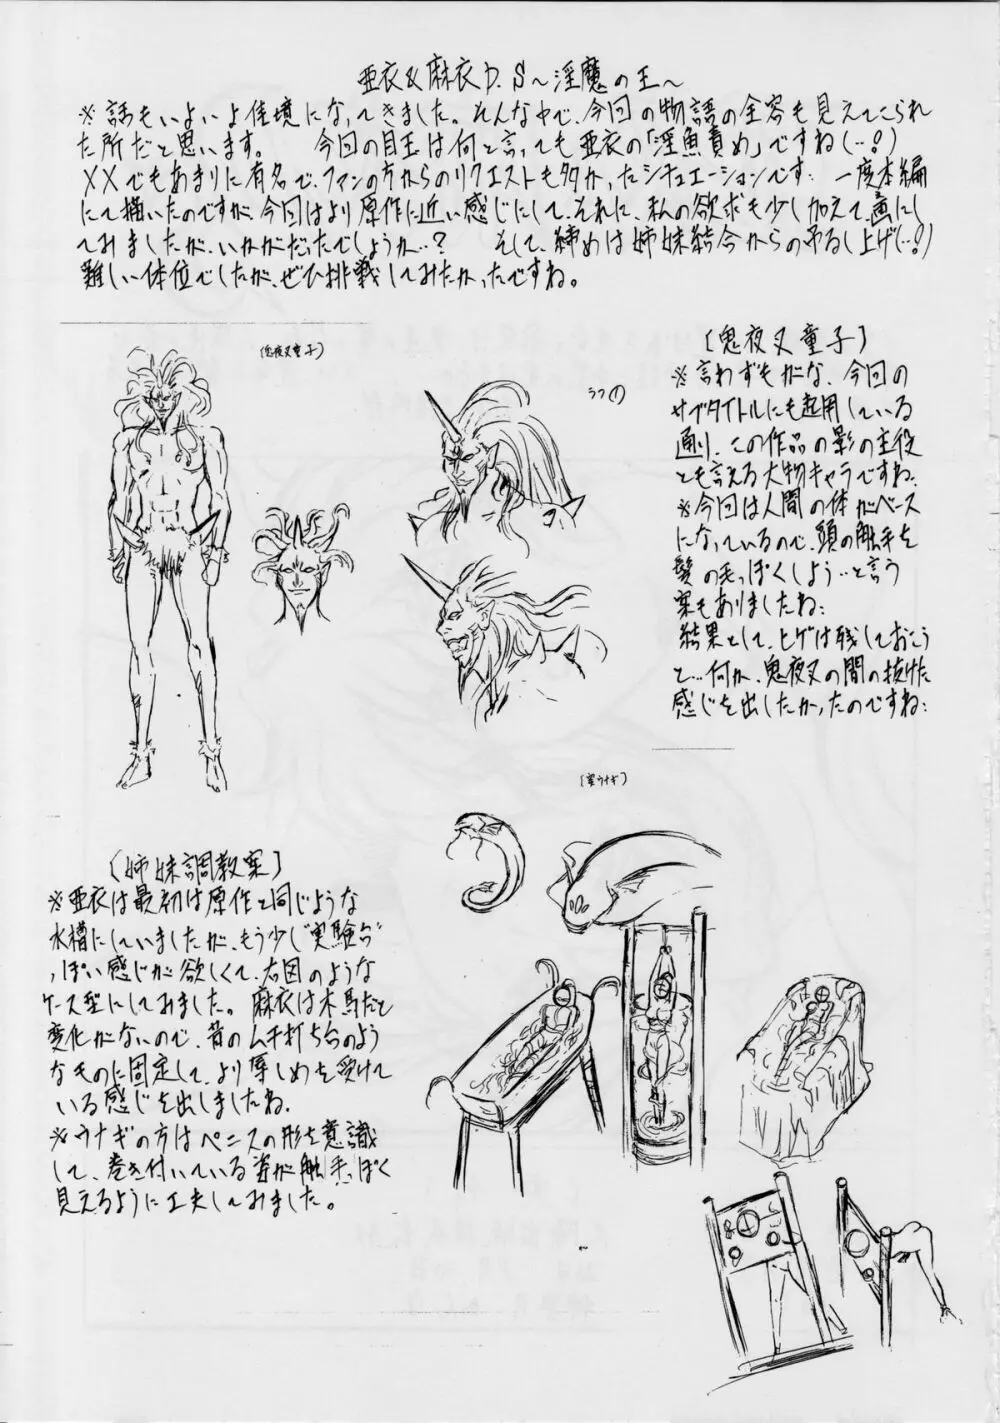 亜衣&麻衣D.S〜淫魔の王〜
※話もいよいよ佳境になってきました。そんな中で、今回の物語の全容も見えてこられ
た所だと思います。 今回の目玉は何と言っても亜衣の「淫魚責め」ですね(…!)
××でもあまりに有名で、ファンの方からのリクエストも多かったシチュエーションです… 一度本編
にて描いたのですが、今回はより原作に近い感じにして、それに、私の欲求も少し加えて、画にし
てみましたが、いかがだったでしょうか…? そして、締めは姉妹結合からの吊るし上げ(…!)
難しい体位でしたが、ぜひ挑戦してみたかったですね。
(鬼夜叉童子)
ラフ①
〔鬼夜叉童子〕
※言わずもがな、今回の
サブタイトルにも起用している
通り、この作品の影の主役
とも言える大物キャラですね。
※今回は人間の体がベース
になっているので、頭の触手を
髪の毛っぽくしよう…と言う
案もありましたね…
結果として、ヒゲは残しておこう
と…何か、鬼夜叉の間の抜けた
感じを出したかったのですね…
〔姉妹調教案〕
※亜衣は最初は原作と同じような
水槽にしていましたが、もう少し"実験台"
っぽい感じが欲しくて、右図のような
ケース型にしてみました。麻衣は木馬だと
変化がないので、昔のムチ打ち台のよう
なものに固定して、より辱しめを受けて
いる感じを出しましたね。
※ウナギの方はペニスの形を意識
して、巻き付いている姿が触手っぽく
見えるように工夫してみました。